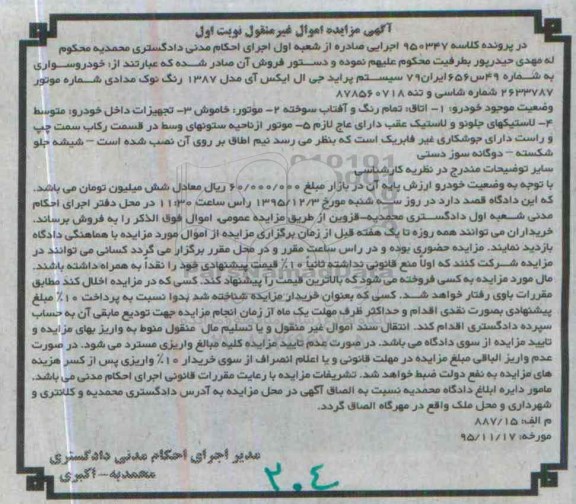 آگهی مزایده اموال غیرمنقول نوبت اول
در پرونده کلاسه ۹۵۰۳۴۷ اجرایی صادره از شعبه اول اجرای احکام مدنی دادگستری محمدیه محکوم
له مهدی حیدرپور بطرفیت محکوم علیهم نموده و دستور فروش آن صادر شده که عبارتند از: خودروسواری
به شماره ۴۹س۶۵۶ایران۷۹ سیستم پراید جی ال ایکس آی مدل ۱۳۸۷ رنگ نوک مدادی شماره موتور
۲۶۳۳۷۸۷ شماره شاسی و تنه ۸۷۸۵۶۰۷۱۸
وضعیت موجود خودرو: ۱- اتاق: تمام رنگ و آفتاب سوخته ۲- موتور: خاموش ۳- تجهیزات داخل خودرو: متوسط
۴- لاستیکهای جلونو و لاستیک عقب دارای عاج لازم ۵- موتور ازناحیه ستونهای وسط در قسمت رکاب سمت چپ
و راست دارای جوشکاری غیر فابریک است که بنظر می رسد نیم اطاق بر روی آن نصب شده است – شیشه جلو
شکسته – دوگانه سوز دستی
سایر توضیحات مندرج در نظریه کارشناسی
با توجه به وضعیت خودرو ارزش پایه آن در بازار مبلغ ۶۰/۰۰۰/۰۰۰ ریال معادل شش میلیون تومان می باشد.
که این دادگاه قصد دارد در روز سه شنبه مورخ ۱۳۹۵/۱۲/۳ راس ساعت ۱۱:۳۰ در محل دفتر اجرای احکام
مدنی شعبه اول دادگستری محمدیه-قزوین از طریق مزایده عمومی، اموال فوق الذکر را به فروش برساند.
خریداران می توانند همه روزه تا یک هفته قبل از زمان برگزاری مزایده از اموال مورد مزایده با هماهنگی دادگاه
بازدید نمایند. مزایده حضوری بوده و در راس ساعت مقرر و در محل مقرر برگزار می گردد کسانی می توانند در
مزایده شرکت کنند که اولاً منع قانونی نداشته ثانیاً ۱۰٪ قیمت پیشنهادی خود را نقداً به همراه داشته باشند.
مال مورد مزایده به کسی فروخته می شود که بالاترین قیمت را پیشنهاد کند. کسی که در مزایده اخلال کند مطابق
مقررات باوی رفتار خواهد شد. کسی که بعنوان خریدار مزایده شناخته شد بدوا نسبت به پرداخت ۱۰٪ مبلغ
پیشنهادی بصورت نقدی اقدام و حداکثر ظرف مهلت یک ماه از زمان انجام مزایده جهت تودیع مابقی آن به حساب
سپرده دادگستری اقدام کند. انتقال سند اموال غیر منقول و یا تسلیم مال منقول منوط به واریز بهای مزایده و
تایید مزایده از سوی دادگاه می باشد. در صورت عدم تایید مزایده کلیه مبالغ واریزی مسترد می شود. در صورت
عدم واریز الباقی مبلغ مزایده در مهلت قانونی و یا اعلام انصراف از سوی خریدار ۱۰٪ واریزی پس از کسر هزینه
های مزایده به نفع دولت ضبط خواهد شد. تشریفات مزایده با رعایت مقررات قانونی اجرای احکام مدنی می باشد.
مامور دایره ابلاغ دادگاه محمدیه نسبت به الصاق آگهی در محل مزایده به آدرس دادگستری محمدیه و کلانتری و
شهرداری و محل ملک واقع در مهرگاه الصاق گردد.
م الف: ۸۸۷/۱۵
مورخه: ۹۵/۱۱/۱۷
مدیر اجرای احکام مدنی دادگستری
محمدیه- اکبری
۲۰۴